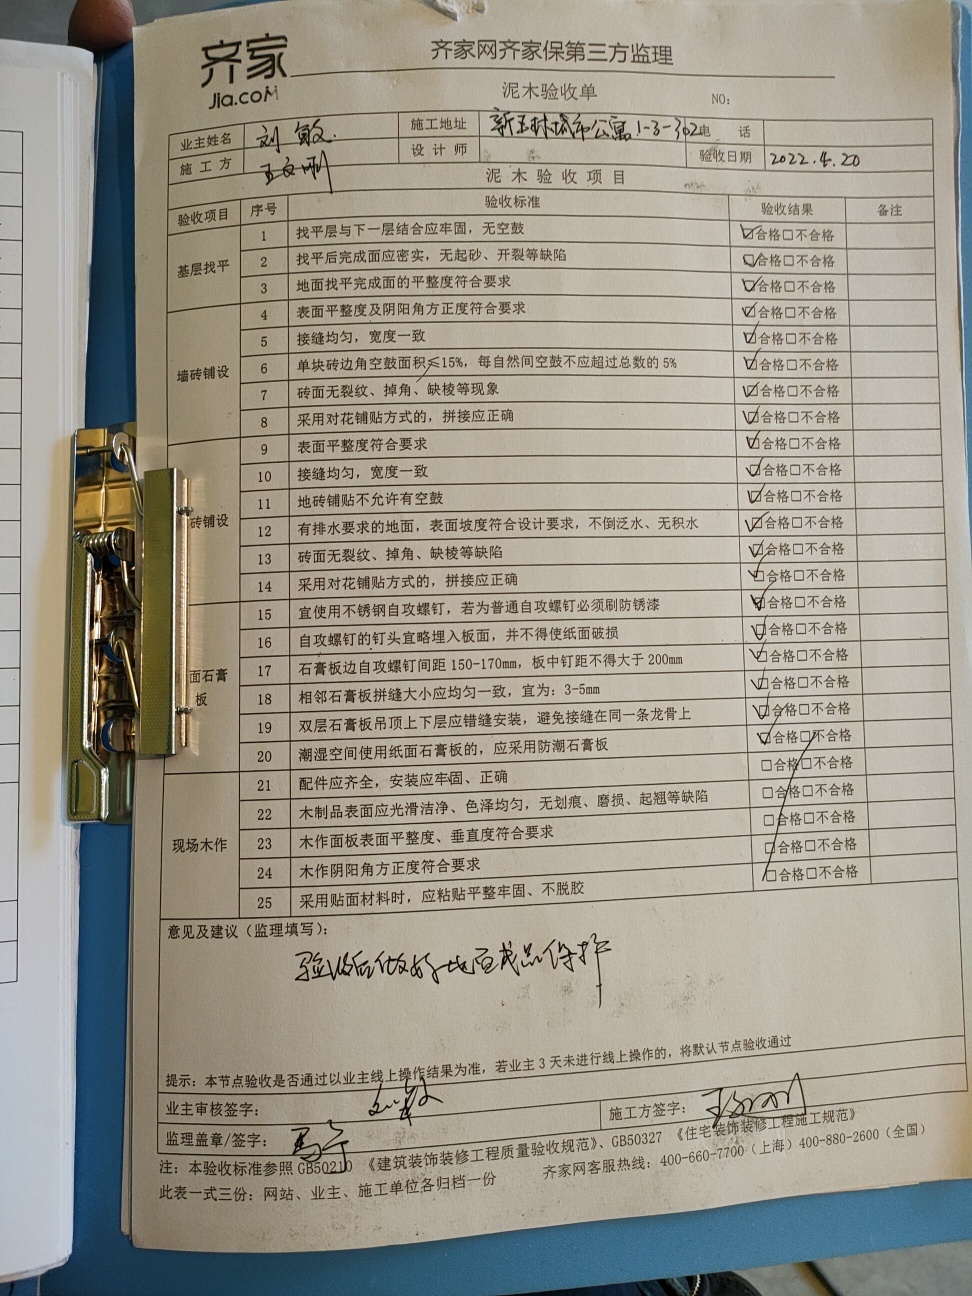 齐家
Jia.com
齐家网齐家保第三方监理
泥木验收单 NO:
业主姓名 刘敏 施工地址 新玉林城市公寓1-3-302 电 话
施工方 王文刚 设计师 验收日期 2022.4.20
泥木验收项目
验收项目 序号 验收标准 验收结果 备注
基层找平
1 找平层与下一层结合应牢固，无空鼓 ☑合格□不合格
2 找平后完成面应密实，无起砂、开裂等缺陷 ☑合格□不合格
3 地面找平完成面的平整度符合要求 ☑合格□不合格
墙砖铺设
4 表面平整度及阴阳角方正度符合要求 ☑合格□不合格
5 接缝均匀，宽度一致 ☑合格□不合格
6 单块砖边角空鼓面积≤15%，每自然间空鼓不应超过总数的5% ☑合格□不合格
7 砖面无裂纹、掉角、缺棱等现象 ☑合格□不合格
8 采用对花铺贴方式的，拼接应正确 ☑合格□不合格
砖铺设
9 表面平整度符合要求 ☑合格□不合格
10 接缝均匀，宽度一致 ☑合格□不合格
11 地砖铺贴不允许有空鼓 ☑合格□不合格
12 有排水要求的地面，表面坡度符合设计要求，不倒泛水、无积水 ☑合格□不合格
13 砖面无裂纹、掉角、缺棱等缺陷 ☑合格□不合格
14 采用对花铺贴方式的，拼接应正确 ☑合格□不合格
面石膏板
15 宜使用不锈钢自攻螺钉，若为普通自攻螺钉必须刷防锈漆 ☑合格□不合格
16 自攻螺钉的钉头宜略埋入板面，并不得使纸面破损 ☑合格□不合格
17 石膏板边自攻螺钉间距150-170mm，板中钉距不得大于200mm ☑合格□不合格
18 相邻石膏板拼缝大小应均匀一致，宜为：3-5mm ☑合格□不合格
19 双层石膏板吊顶上下层应错缝安装，避免接缝在同一条龙骨上 ☑合格□不合格
20 潮湿空间使用纸面石膏板的，应采用防潮石膏板 ☑合格□不合格
现场木作
21 配件应齐全，安装应牢固、正确 □合格□不合格
22 木制品表面应光滑洁净、色泽均匀，无划痕、磨损、起翘等缺陷 □合格□不合格
23 木作面板表面平整度、垂直度符合要求 □合格□不合格
24 木作阴阳角方正度符合要求 □合格□不合格
25 采用贴面材料时，应粘贴平整牢固、不脱胶 □合格□不合格
意见及建议（监理填写）：
验收后做好地面成品保护
提示：本节点验收是否通过以业主线上操作结果为准，若业主3天未进行线上操作的，将默认节点验收通过
业主审核签字： 刘敏 施工方签字： 王文刚
监理盖章/签字：
注：本验收标准参照 GB50210 《建筑装饰装修工程质量验收规范》、GB50327 《住宅装饰装修工程施工规范》
此表一式三份：网站、业主、施工单位各归档一份 齐家网客服热线：400-660-7700（上海）400-880-2600（全国）